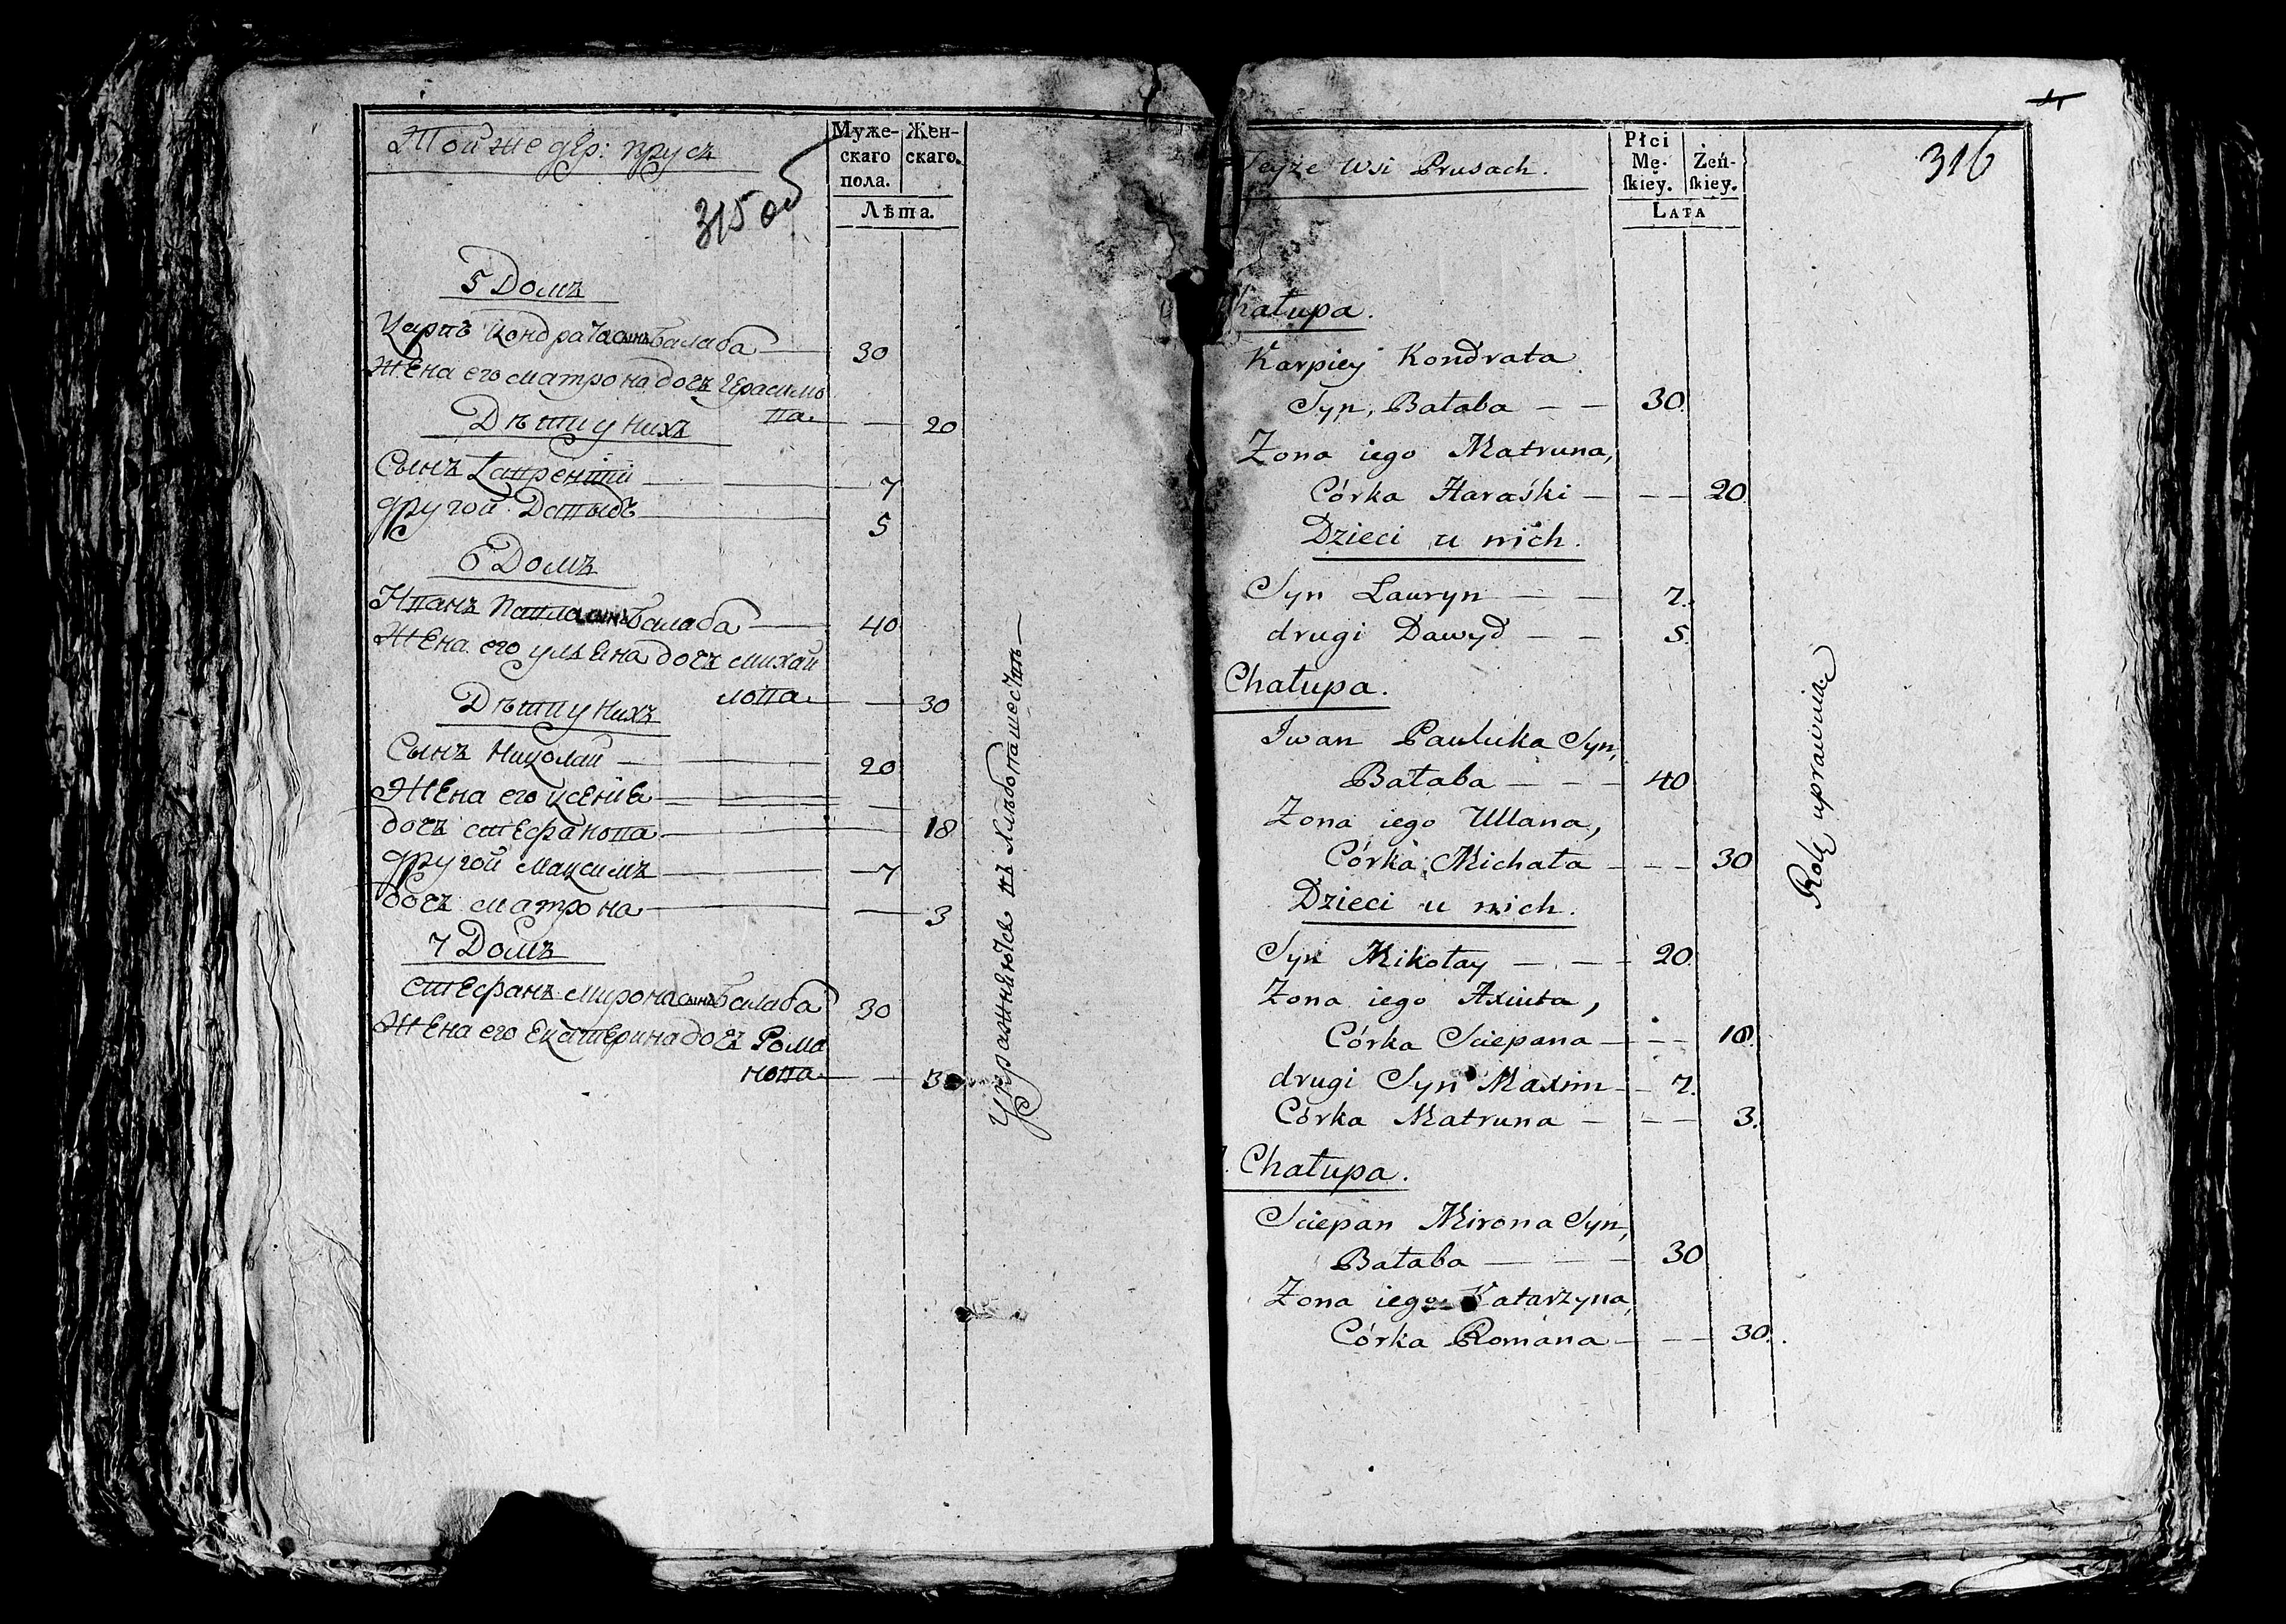 Той же дер: Прусъ
Муже-
скаго
пола.
Жен-
скаго.
Лѣта.
315 об
5 Домъ
Карпъ Кондрата сынъ Балаба 30
Жена его матрона дочъ Герасимо
ва 20
Дѣти у нихъ
Сынъ Лаврентій 7
другой Давыдъ 5
6 Домъ
Иванъ Павла сынъ Балаба 40
Жена его ульяна дочъ михай
лова 30
Дѣти у нихъ
Сынъ Николай 20
Жена его ксенія
дочъ стефанова 18
другой максимъ 7
дочъ матрона 3
7 Домъ
стефанъ мирона сынъ Балаба 30
Жена его екатерина дочъ Рома
нова 3
Упражняются въ хлѣбопашествѣ
Teyże wsi Prusach.
Płci
Mę-
skiey.
Żeń-
skiey.
LATA
316
Chałupa.
Karpiey Kondrata
Syn, Bałaba 30.
Zona iego Matruna,
Córka Haraśki 20.
Dzieci u nich.
Syn Lauryn 7.
drugi Dawyd 5.
Chałupa.
Iwan Pauluka Syn,
Bałaba 40
Zona iego Ullana,
Córka Michała 30
Dzieci u nich.
Syn Mikołay 20.
Zona iego Axiuta,
Córka Sciepana 18.
drugi Syn Maxim 7.
Córka Matruna 3.
Chałupa.
Sciepan Mirona Syn,
Bałaba 30
Zona iego Katarzyna,
Córka Romana 30.
Rolę uprawiaią.